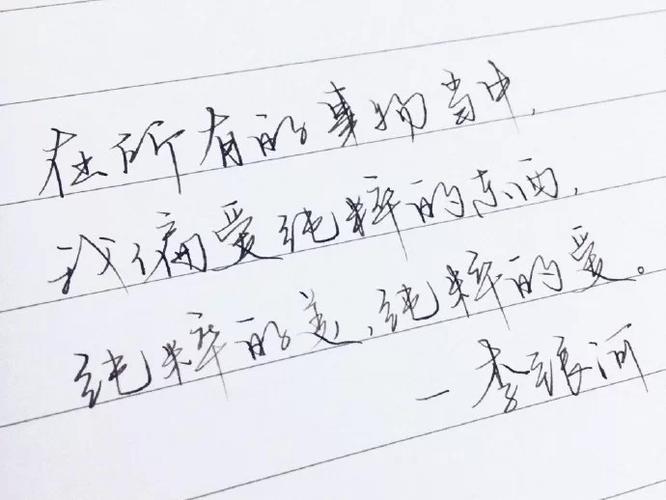 在所有的事物当中,
我偏爱纯粹的东西,
纯粹的美、纯粹的爱。
—李银河